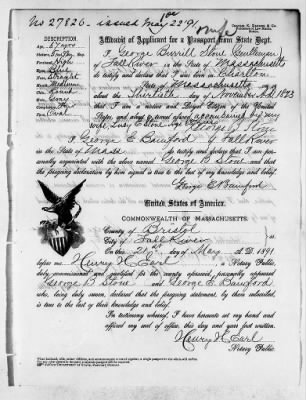 No 27826 - issued May 22 '91
Affidavit of Applicant for a Passport from State Dept.
I George Burrill Stone Gentleman
of Fall River in the State of Massachusetts
do testify and declare that I was born in Charlton
State of Massachusetts on
the Thirtieth day of November A.D. 1823
that I am a native and Loyal Citizen of the United
States, and about to travel abroad, accompanied by my
wife,
George B. Stone
I George E Bamford of Fall River
in the State of Mass do testify and declare that I am personally
acquainted with the above named George B Stone and that
the foregoing declaration by him signed is true to the best of my knowledge and belief.
George E Bamford
United States of America.
COMMONWEALTH OF MASSACHUSETTS.
County of Bristol
City of Fall River
On this 21st day of May A.D. 1891
before me Henry H. Earl Notary Public,
duly commissioned and qualified for the county aforesaid, personally appeared
George B Stone and George E Bamford
who, being duly sworn, declared that the foregoing statement, by them subscribed,
is true to the best of their knowledge and belief.
In testimony whereof, I have hereunto set my hand and
official my seal of office, this day and year first written.
Henry H Earl
Notary Public.
Description.
Age, 67 years
High
Blue
Straight
Medium
Gray
Oval